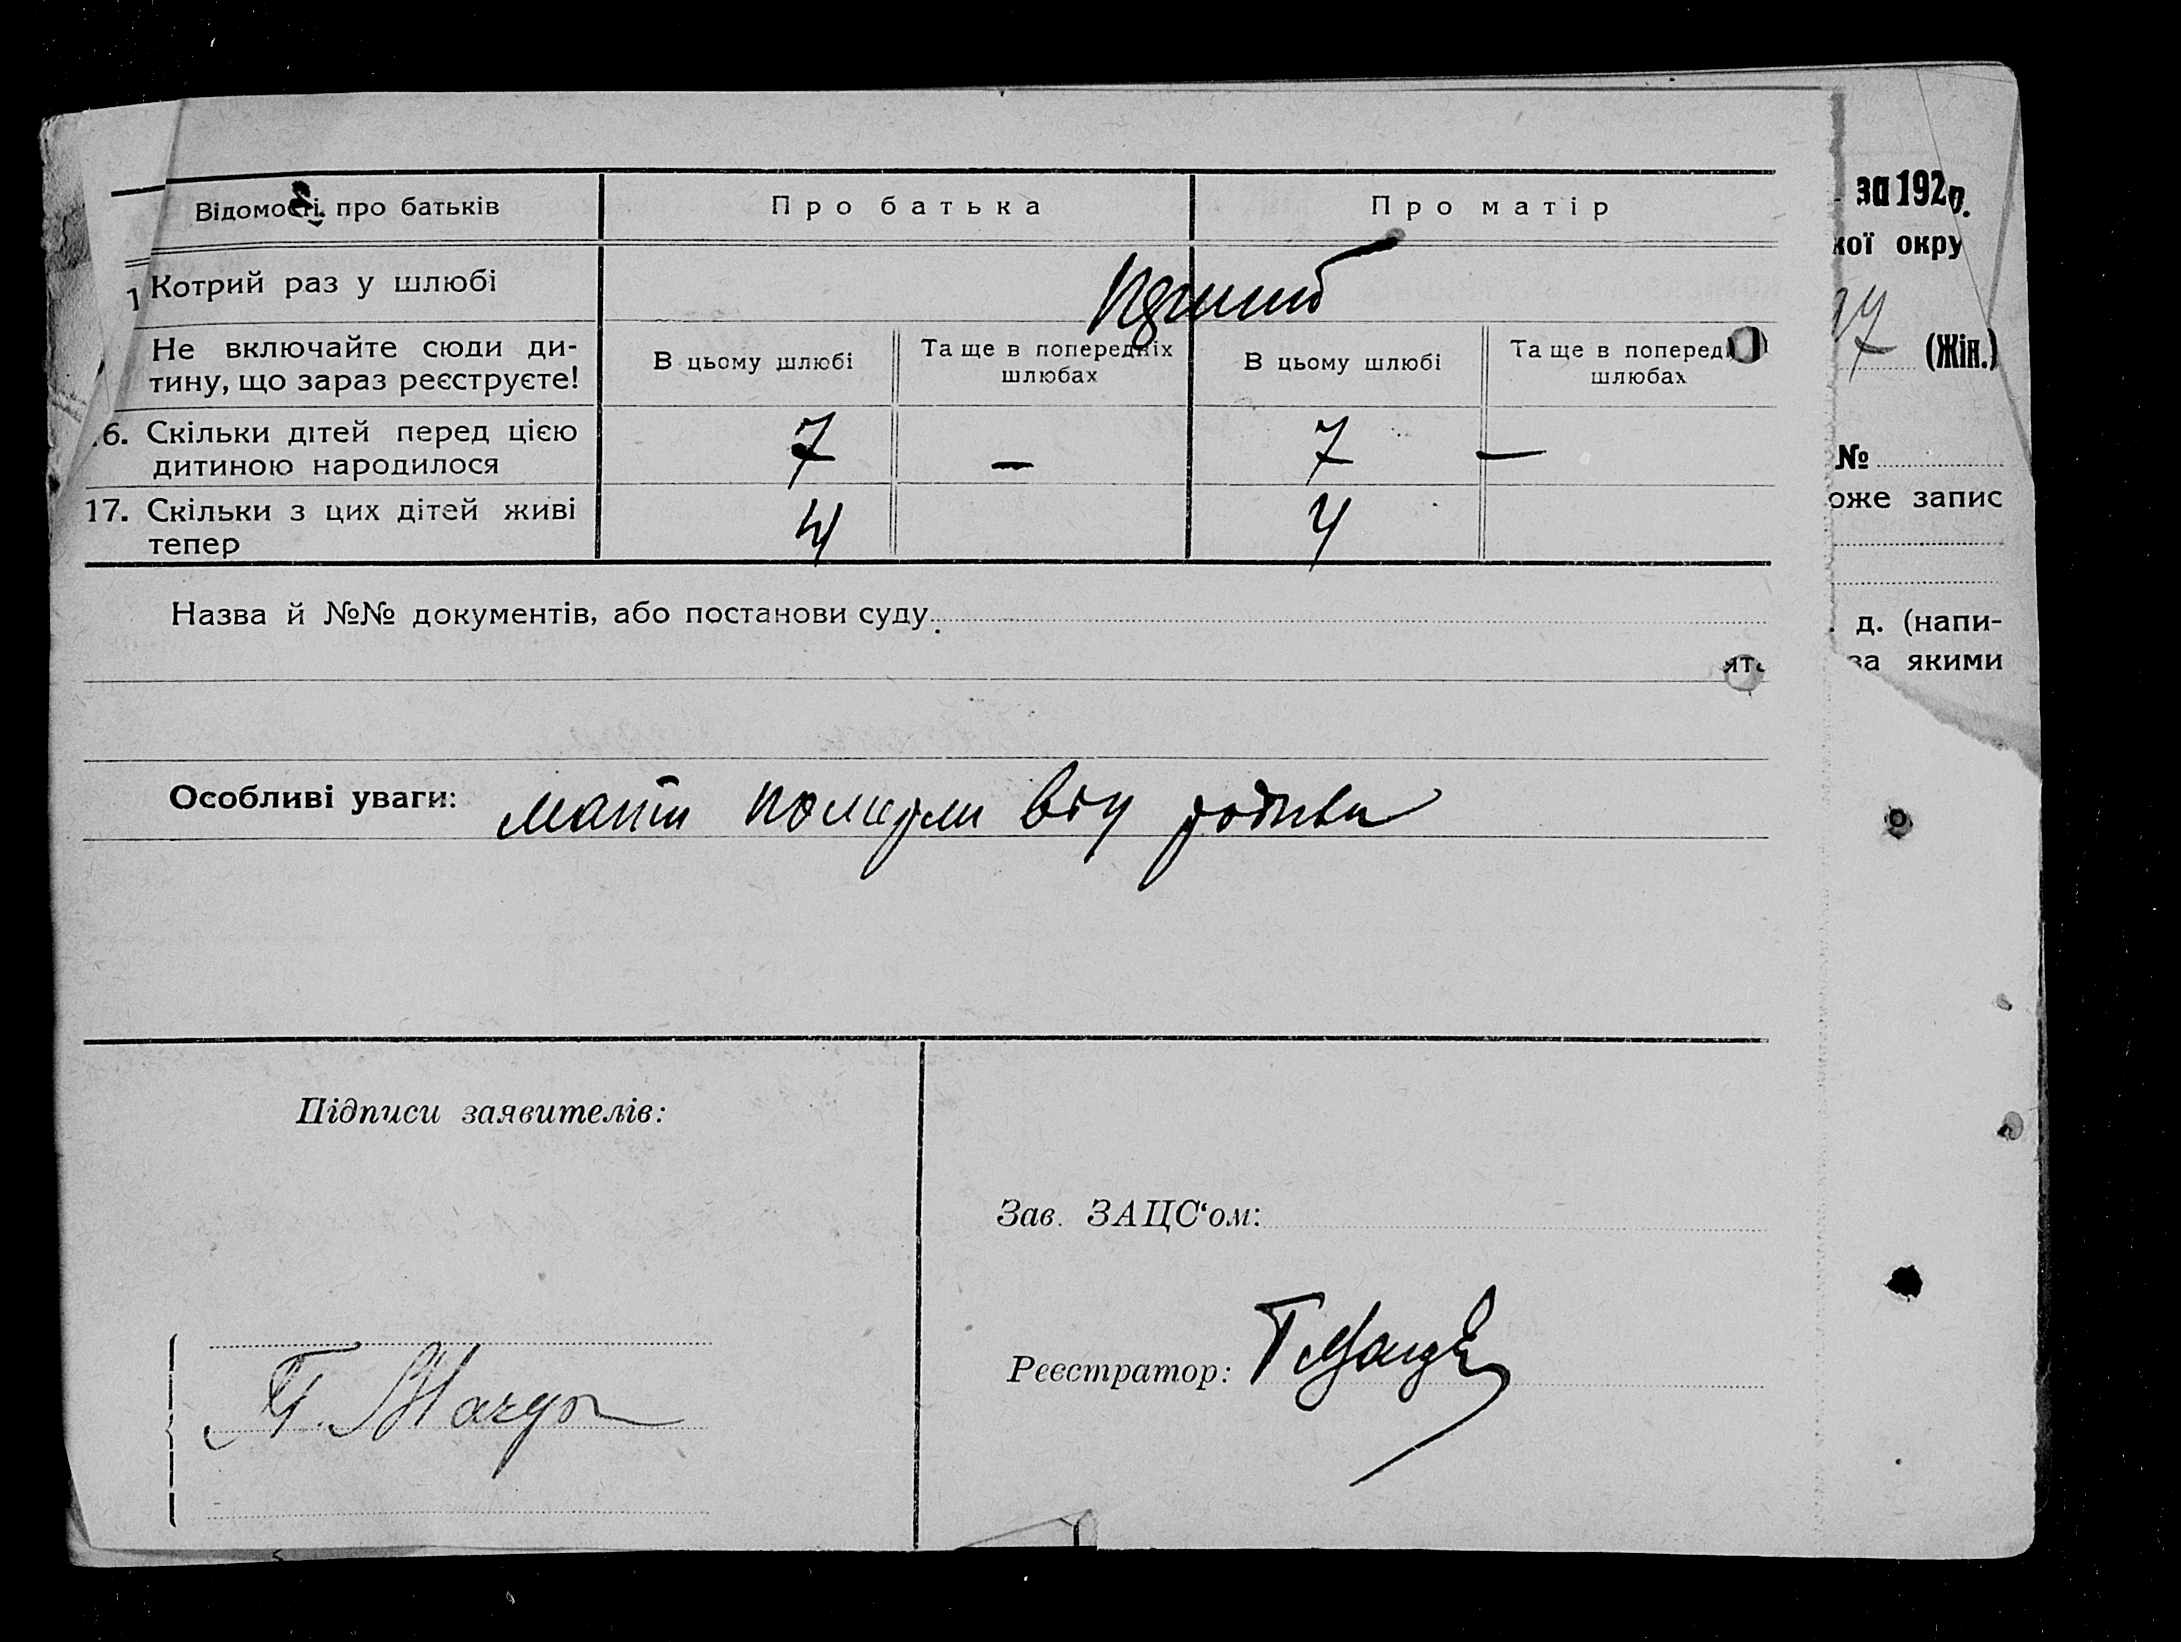 Відомості про батьків
Про батька
Про матір
за 192 р.
кої окру
Котрий раз у шлюбі
(Жін.)
Не включайте сюди ди-
тину, що зараз реєструєте!
В цьому шлюбі
Та ще в попередніх
шлюбах
В цьому шлюбі
Та ще в поперед
шлюбах
6. Скільки дітей перед цією
дитиною народилося
7
–
7
–
№
17. Скільки з цих дітей живі
тепер
4
4
оже запис
Назва й №№ документів, або постанови суду
д. (напи-
за якими
Особливі уваги: мати померли від
Підписи заявителів:
Зав. ЗАЦС‘ом:
Реєстратор: